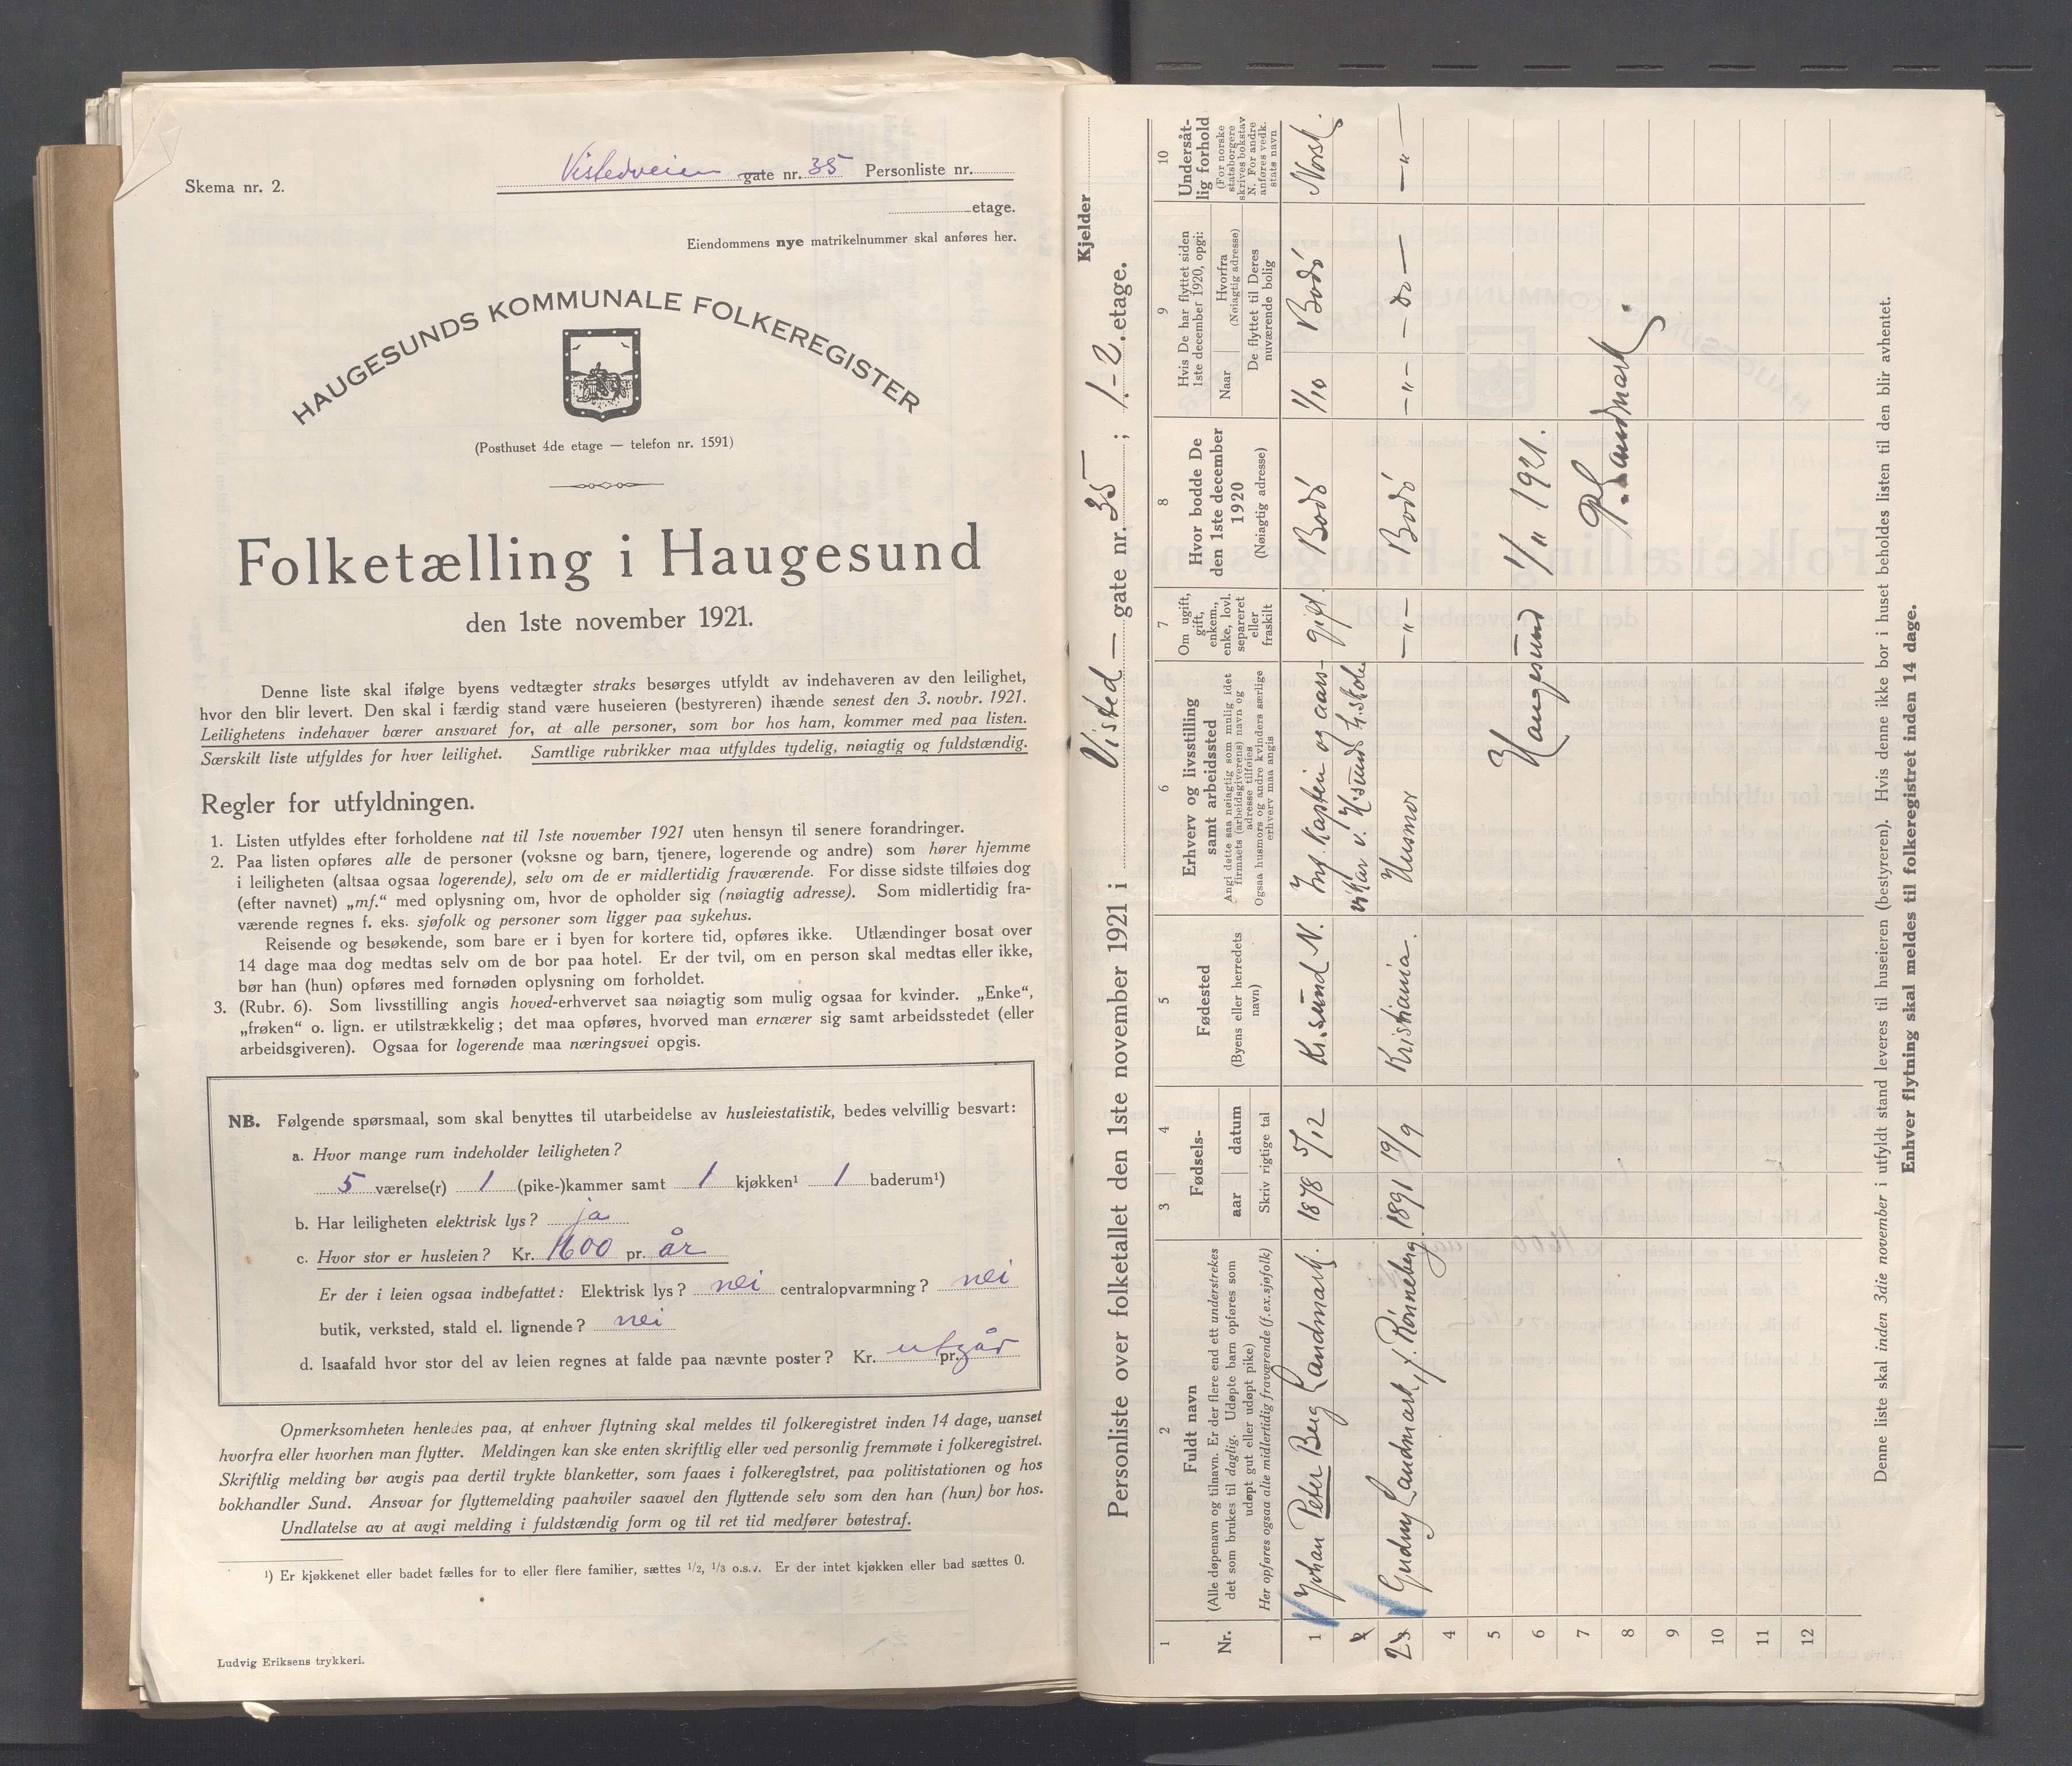 Skema nr. 2.
Vistedveien gate nr. 35 Personliste nr.
etage.
Eiendommens nye matrikelnummer skal anføres her.
HAUGESUNDS KOMMUNALE FOLKEREGISTER
(Posthuset 4de etage — telefon nr. 1591)
Folketælling i Haugesund
den 1ste november 1921.
Denne liste skal ifølge byens vedtægter straks besørges utfyldt av indehaveren av den leilighet,
hvor den blir levert. Den skal i færdig stand være huseieren (bestyreren) ihænde senest den 3. novbr. 1921.
Leilighetens indehaver bærer ansvaret for, at alle personer, som bor hos ham, kommer med paa listen.
Særskilt liste utfyldes for hver leilighet. Samtlige rubrikker maa utfyldes tydelig, nøiagtig og fuldstændig.
Regler for utfyldningen.
1. Listen utfyldes efter forholdene nat til 1ste november 1921 uten hensyn til senere forandringer.
2. Paa listen opføres alle de personer (voksne og barn, tjenere, logerende og andre) som hører hjemme
i leiligheten (altsaa ogsaa logerende), selv om de er midlertidig fraværende. For disse sidste tilføies dog
(efter navnet) „mf.“ med oplysning om, hvor de opholder sig (nøiagtig adresse). Som midlertidig fra-
værende regnes f. eks. sjøfolk og personer som ligger paa sykehus.
Reisende og besøkende, som bare er i byen for kortere tid, opføres ikke. Utlændinger bosat over
14 dage maa dog medtas selv om de bor paa hotel. Er der tvil, om en person skal medtas eller ikke,
bør han (hun) opføres med fornøden oplysning om forholdet.
3. (Rubr. 6). Som livsstilling angis hoved-erhvervet saa nøiagtig som mulig ogsaa for kvinder. „Enke“,
„frøken“ o. lign. er utilstrækkelig; det maa opføres, hvorved man ernærer sig samt arbeidsstedet (eller
arbeidsgiveren). Ogsaa for logerende maa næringsvei opgis.
NB. Følgende spørsmaal, som skal benyttes til utarbeidelse av husleiestatistik, bedes velvillig besvart:
a. Hvor mange rum indeholder leiligheten?
5 værelse(r) 1 (pike-)kammer samt 1 kjøkken¹ 1 baderum¹)
b. Har leiligheten elektrisk lys? ja
c. Hvor stor er husleien? Kr. 1600 pr. år
Er der i leien ogsaa indbefattet: Elektrisk lys? nei centralopvarmning? nei
butik, verksted, stald el. lignende? nei
d. Isaafald hvor stor del av leien regnes at falde paa nævnte poster? Kr. utgår pr.
Opmerksomheten henledes paa, at enhver flytning skal meldes til folkeregistret inden 14 dage, uanset
hvorfra eller hvorhen man flytter. Meldingen kan ske enten skriftlig eller ved personlig fremmøte i folkeregistret.
Skriftlig melding bør avgis paa dertil trykte blanketter, som faaes i folkeregistret, paa politistationen og hos
bokhandler Sund. Ansvar for flyttemelding paahviler saavel den flyttende selv som den han (hun) bor hos.
Undlatelse av at avgi melding i fuldstændig form og til ret tid medfører bøtestraf.
¹) Er kjøkkenet eller badet fælles for to eller flere familier, sættes 1/2, 1/3 o.s.v. Er der intet kjøkken eller bad sættes 0.
Ludvig Eriksens trykkeri.
Kjelder
Personliste over folketallet den 1ste november 1921 i Visted — gate nr. 35 ; 1.-2. etage.
1 2 3 4 5 6 7 8 9 10
Nr.
Fuldt navn
(Alle døpenavn og tilnavn. Er der flere end ett understrekes
det som brukes til daglig. Udøpte barn opføres som
udøpt gut eller udøpt pike)
Her opføres ogsaa alle midlertidig fraværende (f.ex. sjøfolk)
Fødsels-
aar datum
Skriv rigtige tal
Fødested
(Byens eller herredets
navn)
Erhverv og livsstilling
samt arbeidssted
Angi dette saa nøiagtig som mulig idet
firmaets (arbeidsgiverens) navn og
adresse tilføies
Ogsaa husmors og andre kvinders særlige
erhverv maa angis
Om ugift,
gift,
enkem.,
enke, lovl.
separeret
eller
fraskilt
Hvor bodde De
den 1ste december
1920
(Nøiagtig adresse)
Hvis De har flyttet siden
1ste december 1920, opgi:
Naar
Hvorfra
(Nøiagtig adresse)
De flyttet til Deres
nuværende bolig
Undersåt-
lig forhold
(For norske
statsborgere
skrives bokstav
N. For andre
anføres vedk.
stats navn
1 Johan Peter Berg Landmark. 1878 5/12 Kr.sund N. Inf. kaptein og aars- gift. Bodö 1/10 Bodö Norsk.
2 vikar v. H.sunds h.skole
23 Gudny Landmark, f. Rönneberg. 1891 19/9 Kristiania. Husmor —„— Bodö -„- -do- —„—
4
5 Haugesund
6 1/11 1921.
7
8 P. Landmark.
9
10
11
12
Denne liste skal inden 3die november i utfyldt stand leveres til huseieren (bestyreren). Hvis denne ikke bor i huset beholdes listen til den blir avhentet.
Enhver flytning skal meldes til folkeregistret inden 14 dage.